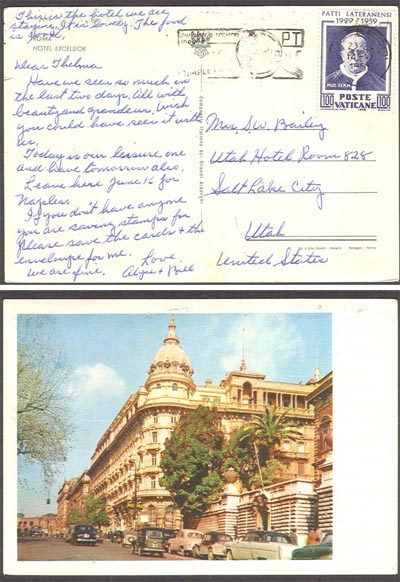 This is the hotel we are
staying. It is lovely. The food
is good.
ROMA
HOTEL EXCELSIOR
Dear Thelma
Have we seen so much in
the last two days, all with
beauty and grandeur. Wish
you could have seen it with
us.
Today is our leisure one
and leave tomorrow also.
Leave here June 16 for
Naples.
If you don't have anyone
you are saving stamps for
Please save the cards & the
envelope for me. Love.
We are fine. & Bill
PATTI LATERANENSI
1929 1959
PIUS XI P.M.
100 POSTE VATICANE 100
PT
Mrs. S.W. Bailey
Utah Hotel Room 828
Salt Lake City
Utah
United States